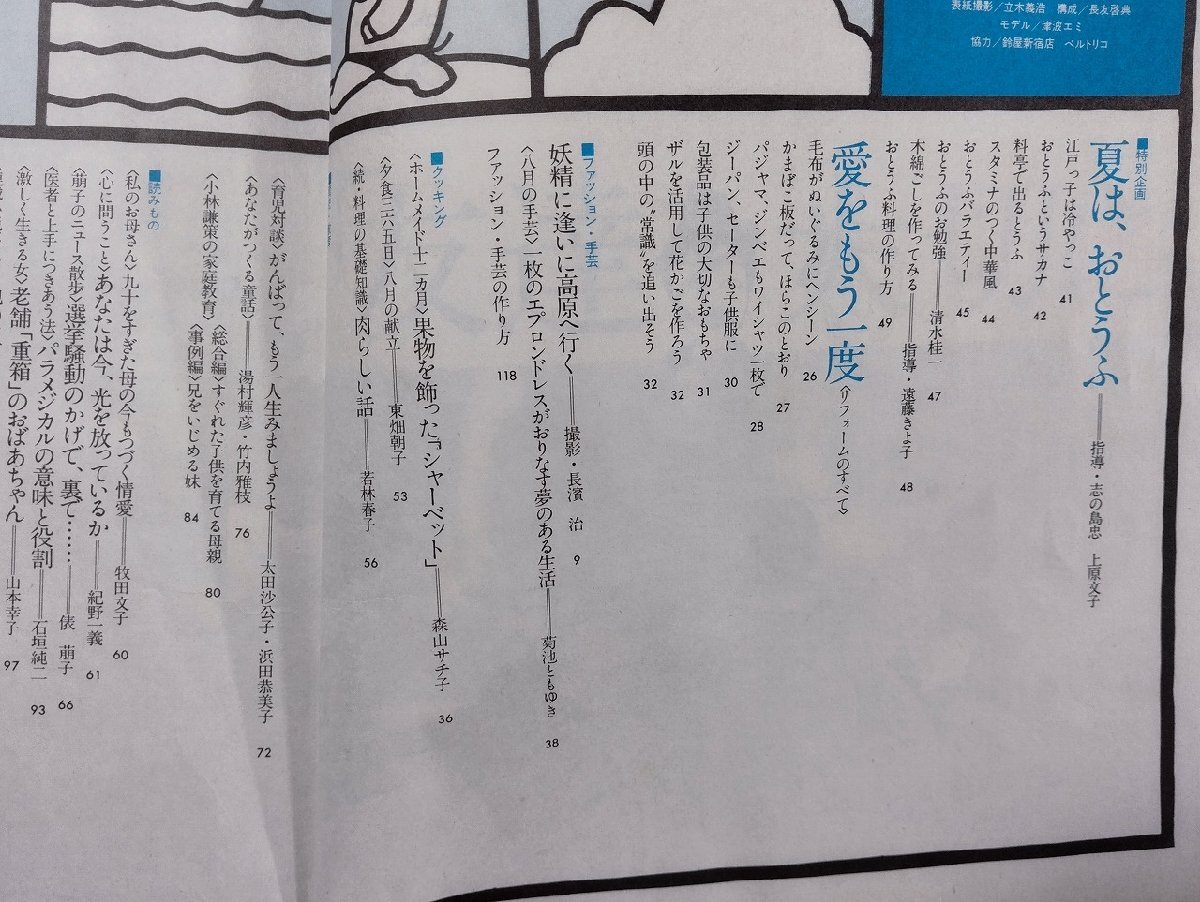 表紙撮影／立木義浩　構成／長友啓典
モデル／津波エミ
協力／鈴屋新宿店　ベルトリコ
■特別企画
夏は、おとうふ――指導・志の島忠　上原文子
江戸っ子は冷やっこ 41
おとうふというサカナ 42
料亭で出るとうふ 43
スタミナのつく中華風 44
おとうふバラエティー 45
おとうふのお勉強――清水桂一 47
木綿ごしを作ってみる――指導・遠藤きよ子 48
おとうふ料理の作り方 49
愛をもう一度〈リフォームのすべて〉
毛布がぬいぐるみにヘンシーン 26
かまぼこ板だって、ほらこのとおり 27
パジャマ、ジンベエもワイシャツ一枚で 28
ジーパン、セーターも子供服に 30
包装品は子供の大切なおもちゃ 31
ザルを活用して花かごを作ろう 32
頭の中の“常識”を追い出そう 32
■ファッション・手芸
妖精に逢いに高原へ行く――撮影・長濱　治 9
〈八月の手芸〉一枚のエプロンドレスがおりなす夢のある生活――菊池ともゆき 38
ファッション・手芸の作り方 118
■クッキング
〈ホームメイド十二カ月〉果物を飾った「シャーベット」――森山サチ子 36
〈夕食三六五日〉八月の献立――東畑朝子 53
〈続・料理の基礎知識〉肉らしい話――若林春子 56
〈育児対談〉がんばって、もう一人生みましょうよ――太田沙公子・浜田恭美子 72
〈あなたがつくる童話〉――湯村輝彦・竹内雅枝 76
〈小林謙策の家庭教育〉〈総合編〉すぐれた子供を育てる母親 80
〈事例編〉兄をいじめる妹 84
■読みもの
〈私のお母さん〉九十をすぎた母の今もつづく情愛――牧田文子 60
〈心に問うこと〉あなたは今、光を放っているか――紀野一義 61
〈萠子のニュース散歩〉選挙騒動のかげで、裏で……――俵　萠子 66
〈医者と上手につきあう法〉パラメジカルの意味と役割――石垣純二 93
〈激しく生きる女〉老舗「重箱」のおばあちゃん――山本幸子 97